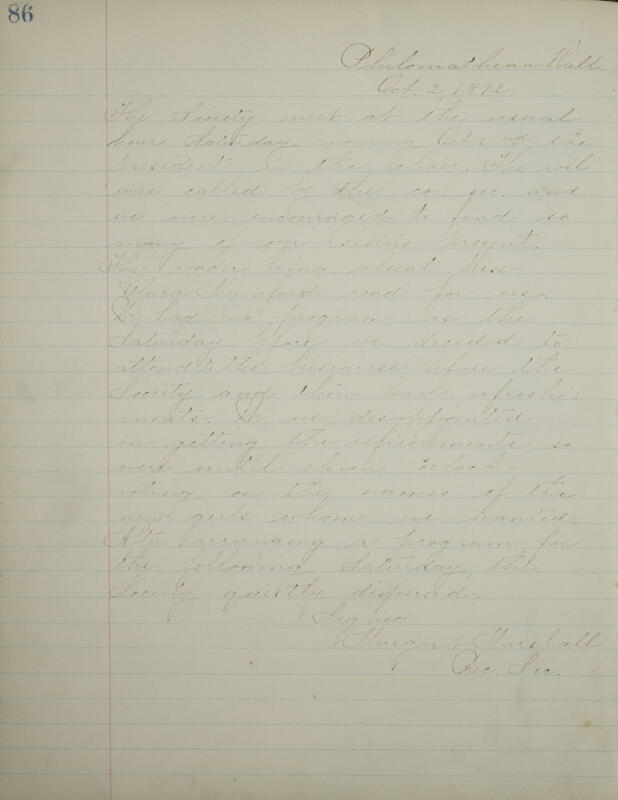 86
Philomathean Hall.
Oct. 2, 1892.
The Society met at the usual
hour Saturday morning Oct 2nd, the
President in the chair. The roll
was called by the cor. sec. and
we were encouraged to find so
many of our sisters present.
The reader being absent Miss
Clara Mumford read for us.
had no program as the
Saturday before we decided to
attend to the business before the
Society and then have refresh-
ments. we disappointed
in getting the refreshments so
were until eleven o'clock
voting on the names of the
new girls whom we wanted.
After arranging a program for
the following Saturday, the
Society quietly dispersed.
Signed
Margaret Marshall
Rec. Sec.